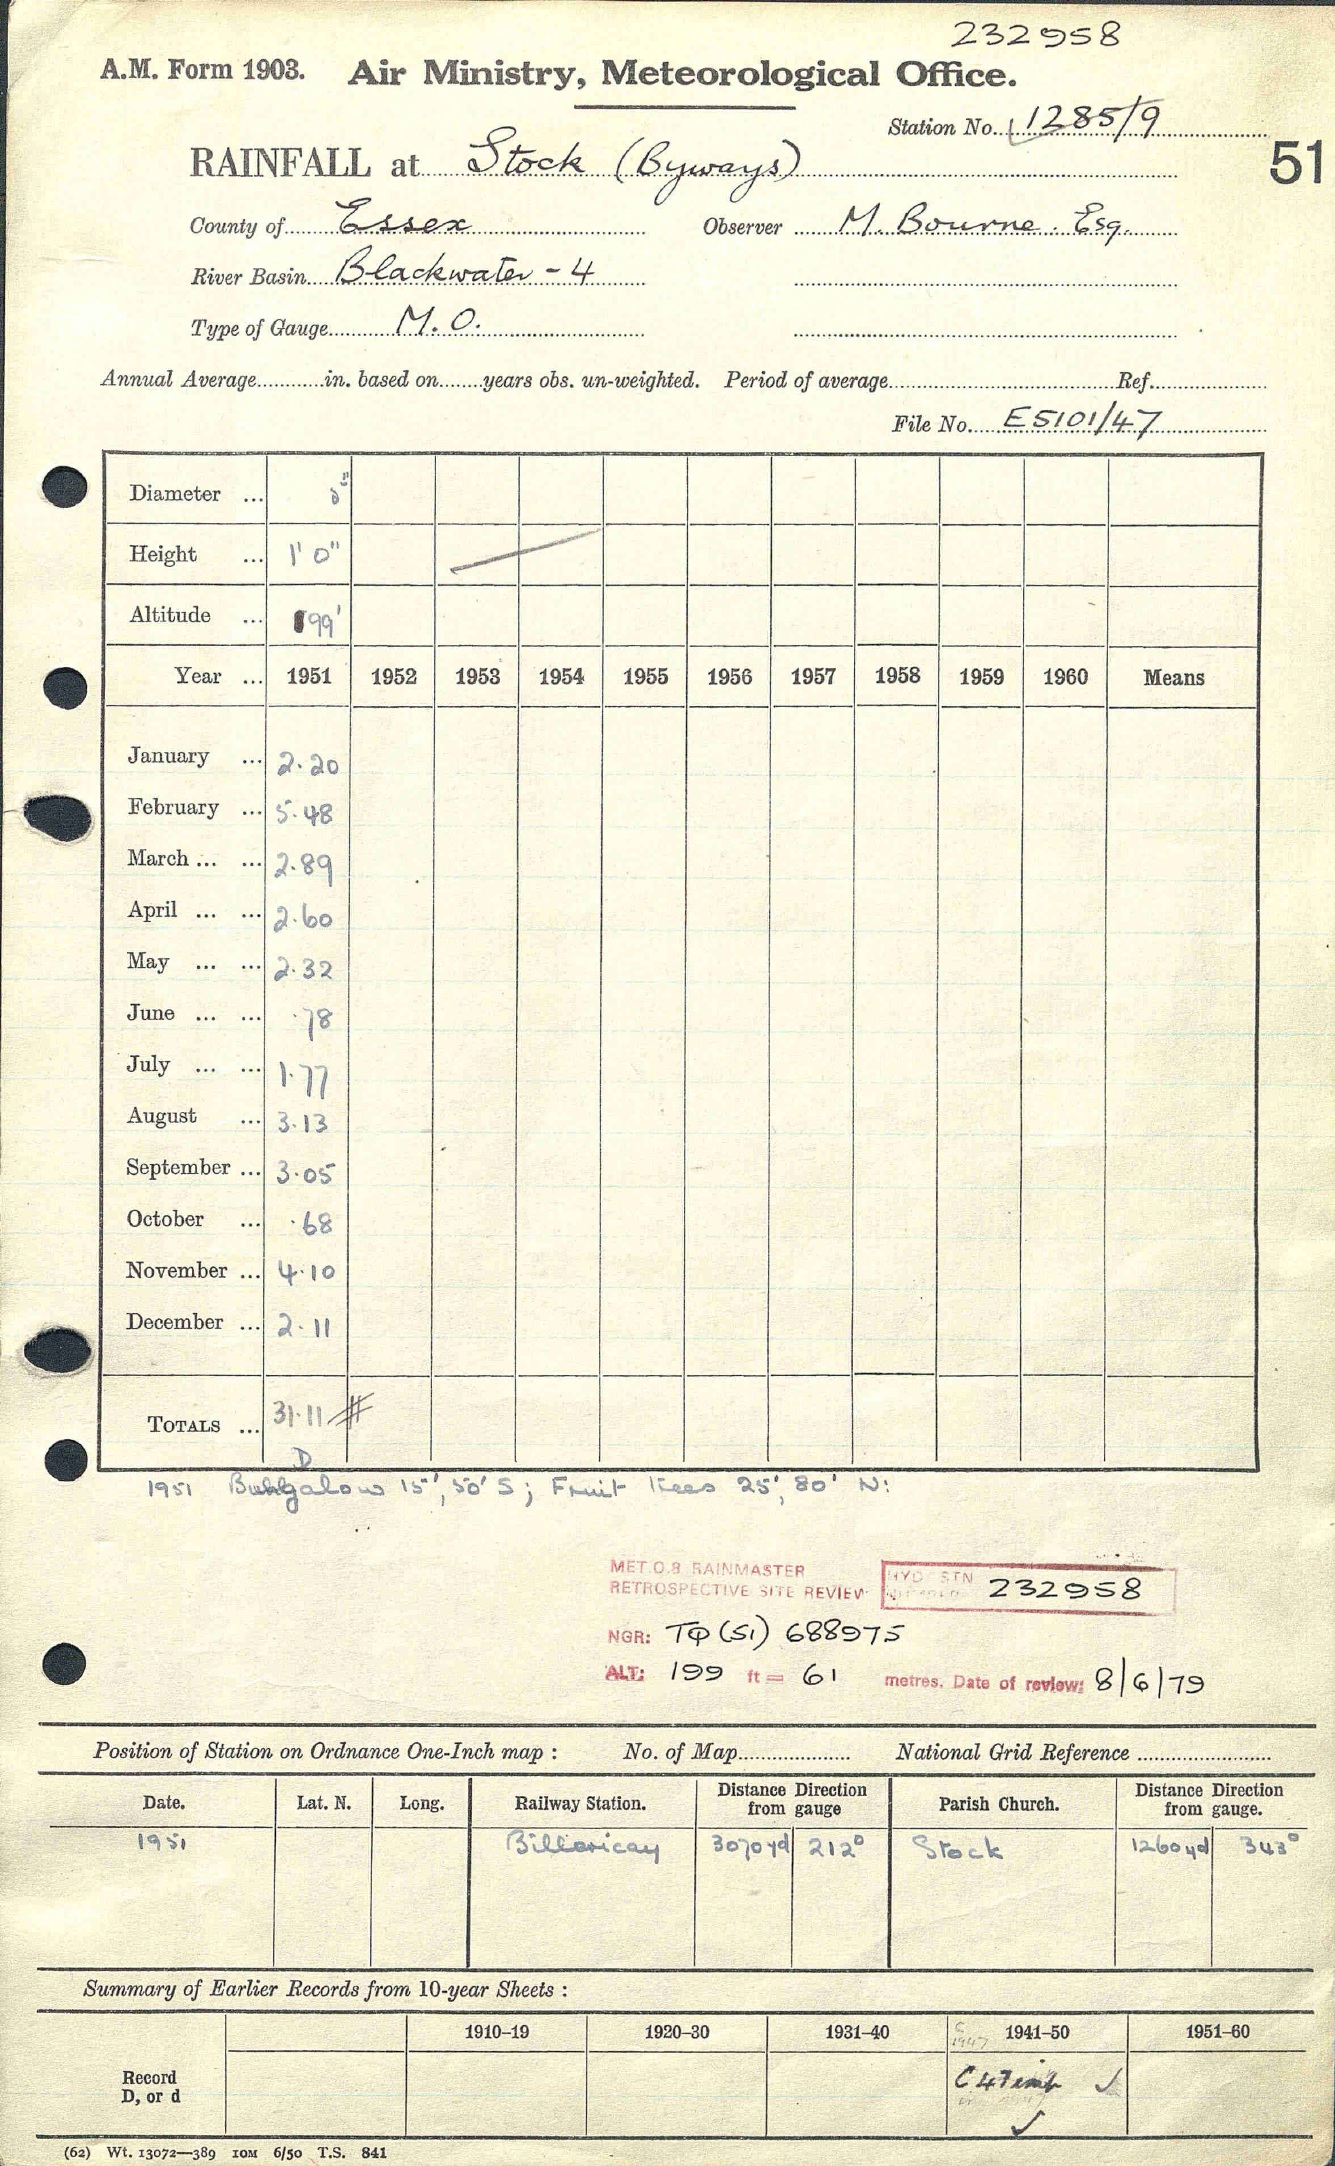 232958
A.M. Form 1903. Air Ministry, Meteorological Office.
Station No. 1285/9
51
RAINFALL at Stock (Byways)
County of Essex Observer M. Bourne. Esq.
River Basin Blackwater - 4
Type of Gauge M.O.
Annual Average............in. based on........years obs. un-weighted. Period of average............Ref............
File No. E5101/47
Diameter ...
Height ... 1' 0"
Altitude ... 199'
Year ... 1951 1952 1953 1954 1955 1956 1957 1958 1959 1960 Means
January ... 2.20
February ... 5.48
March ... ... 2.89
April ... ... 2.60
May ... ... 2.32
June ... ... .78
July ... ... 1.77
August ... 3.13
September ... 3.05
October ... .68
November ... 4.10
December ... 2.11
TOTALS ... 31.11
D
1951 Bungalow 15', 50' S; Fruit Trees 25', 80' N:
MET.O.8 RAINMASTER
RETROSPECTIVE SITE REVIEW
HYD STN 232958
NGR: TQ (51) 688975
ALT: 199 ft = 61 metres. Date of review: 8/6/79
Position of Station on Ordnance One-Inch map : No. of Map............ National Grid Reference ............
Date. Lat. N. Long. Railway Station. Distance Direction from gauge Parish Church. Distance Direction from gauge.
1951 Billericay 3070yd 212° Stock 1260yd 343°
Summary of Earlier Records from 10-year Sheets :
1910–19 1920–30 1931–40 1941–50 1951–60
C 1947
Record
D, or d
(62) Wt. 13072—389 10M 6/50 T.S. 841